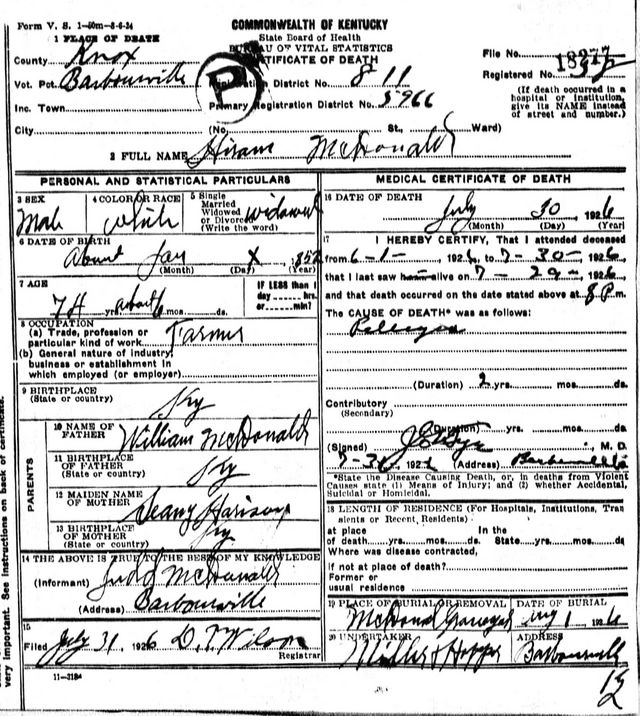 Form V. S. 1-50m-8-6-24
COMMONWEALTH OF KENTUCKY
State Board of Health
BUREAU OF VITAL STATISTICS
CERTIFICATE OF DEATH
1 PLACE OF DEATH
County Knox
Vot. Pct. Barbourville
Inc. Town
City
P
Registration District No. 811
Primary Registration District No. 5966
File No. 18277
Registered No.
(If death occurred in a
hospital or institution,
give its NAME instead
of street and number.)
(No. St., Ward)
2 FULL NAME Hiram McDonald
PERSONAL AND STATISTICAL PARTICULARS
3 SEX
Male
4 COLOR OR RACE
White
5 Single
Married
Widowed
or Divorced
(Write the word)
Widowed
6 DATE OF BIRTH
About Jan X 1852
(Month) (Day) (Year)
7 AGE
74 yrs. about 6 mos.
IF LESS than 1
day hrs.
or min?
8 OCCUPATION
(a) Trade, profession or
particular kind of work Farmer
(b) General nature of industry,
business or establishment in
which employed (or employer)
9 BIRTHPLACE
(State or country)
Ky
PARENTS
10 NAME OF
FATHER
William McDonald
11 BIRTHPLACE
OF FATHER
(State or country)
Ky
12 MAIDEN NAME
OF MOTHER
13 BIRTHPLACE
OF MOTHER
(State or country)
Ky
14 THE ABOVE IS TRUE TO THE BEST OF MY KNOWLEDGE
(Informant) McDonald
(Address) Barbourville
15
Filed July 31, 1926 Wilson
Registrar
11-3184
MEDICAL CERTIFICATE OF DEATH
16 DATE OF DEATH
July 30 1926
(Month) (Day) (Year)
17 I HEREBY CERTIFY, That I attended deceased
from 6-1- 1926, to 7-30- 1926
that I last saw alive on 7-29- 1926
and that death occurred on the date stated above at 8 P m.
The CAUSE OF DEATH* was as follows:
Pellegra
(Duration) 2 yrs. mos. ds.
Contributory
(Secondary)
(Duration) yrs. mos. ds.
(Signed) M. D.
192 (Address) Barbourville
*State the Disease Causing Death, or, in deaths from Violent
Causes state (1) Means of Injury; and (2) whether Accidental,
Suicidal or Homicidal.
18 LENGTH OF RESIDENCE (For Hospitals, Institutions, Tran
sients or Recent Residents)
at place In the
of death yrs. mos. ds. State yrs. mos. ds.
Where was disease contracted,
if not at place of death?
Former or
usual residence
19 PLACE OF BURIAL OR REMOVAL
DATE OF BURIAL
Aug 1 1926
20 UNDERTAKER
Miller & Hopper
ADDRESS
Barbourville
very important. See instructions on back of certificate.